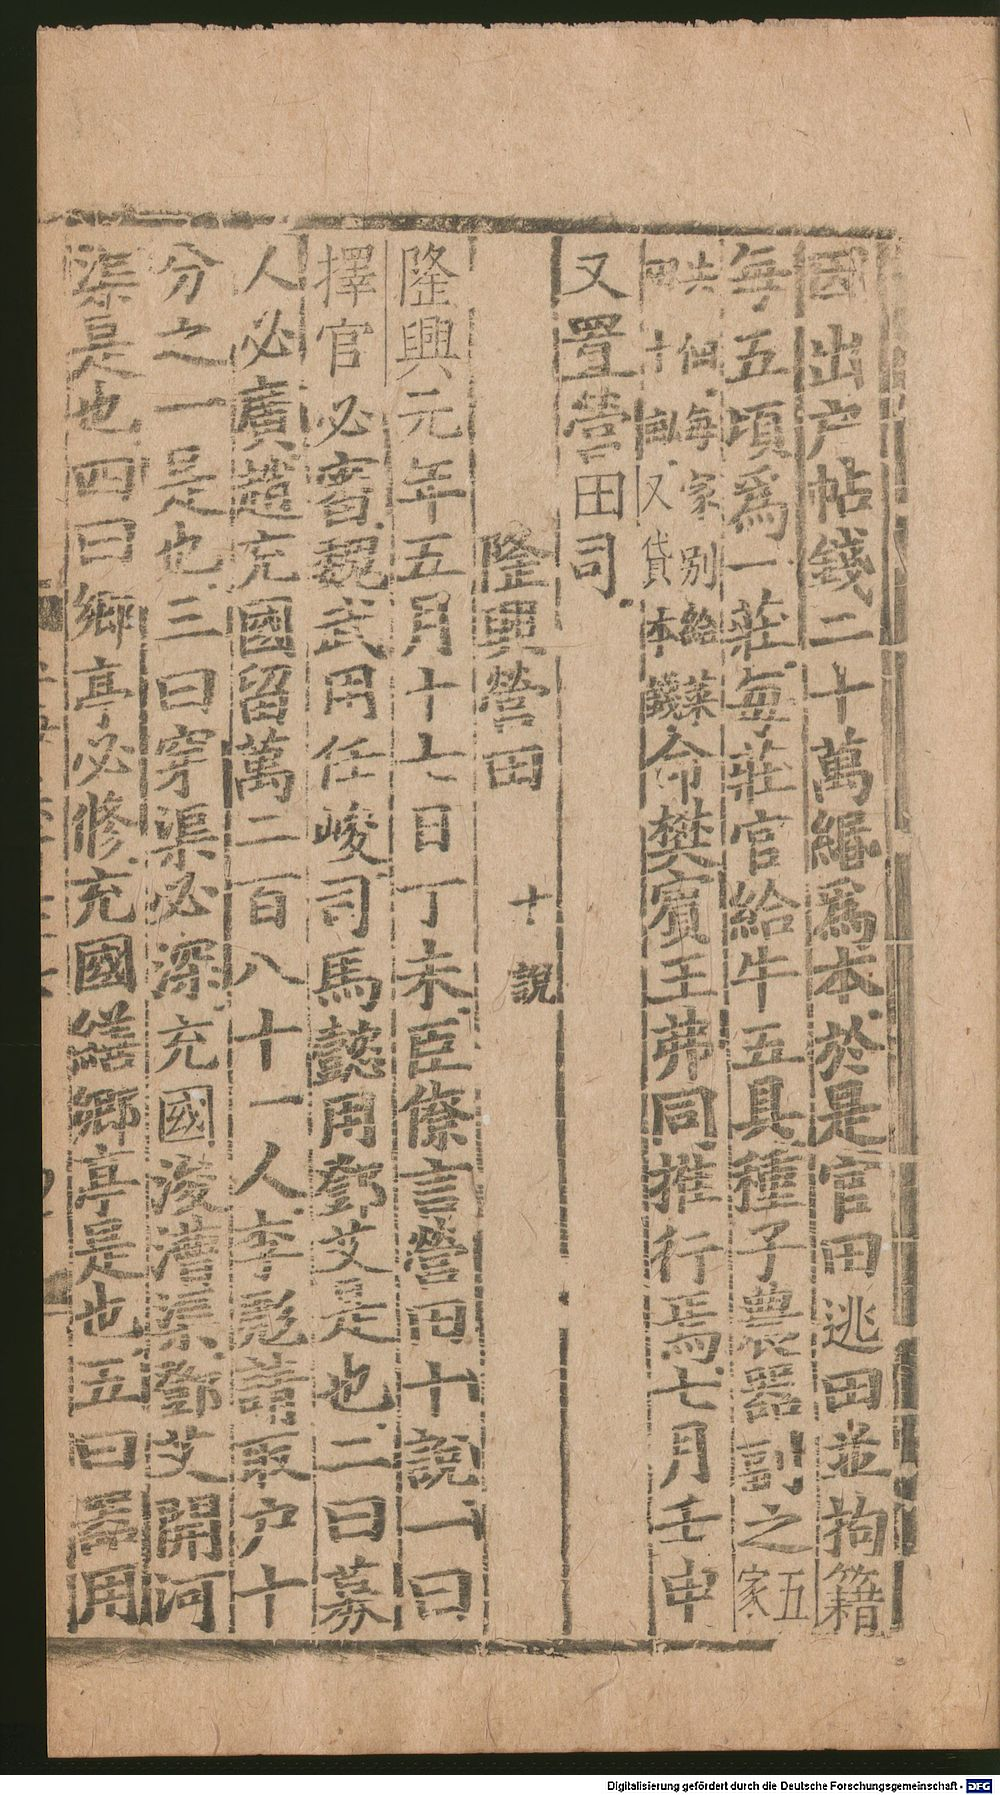 因出户帖錢二十萬緡爲本於是官田逃田並拘籍
每五頃爲一莊每莊官給牛五具種子農器副之五家
共佃每家別給菜田十畝又貸本錢命樊賓王茀同推行焉七月壬申
又置營田司
隆興營田十說
隆興元年五月十七日丁未臣條言營田十說一曰
擇官必審魏武用任峻司馬懿用鄧艾是也二曰募
人必廣趙充國留萬二百八十一人李彪請取户十
分之一是也三曰穿渠必深充國浚漕渠鄧艾開河
渠是也四曰鄉亭必修充國繕鄉亭是也五曰器用
Digitalisierung gefördert durch die Deutsche Forschungsgemeinschaft - DFG